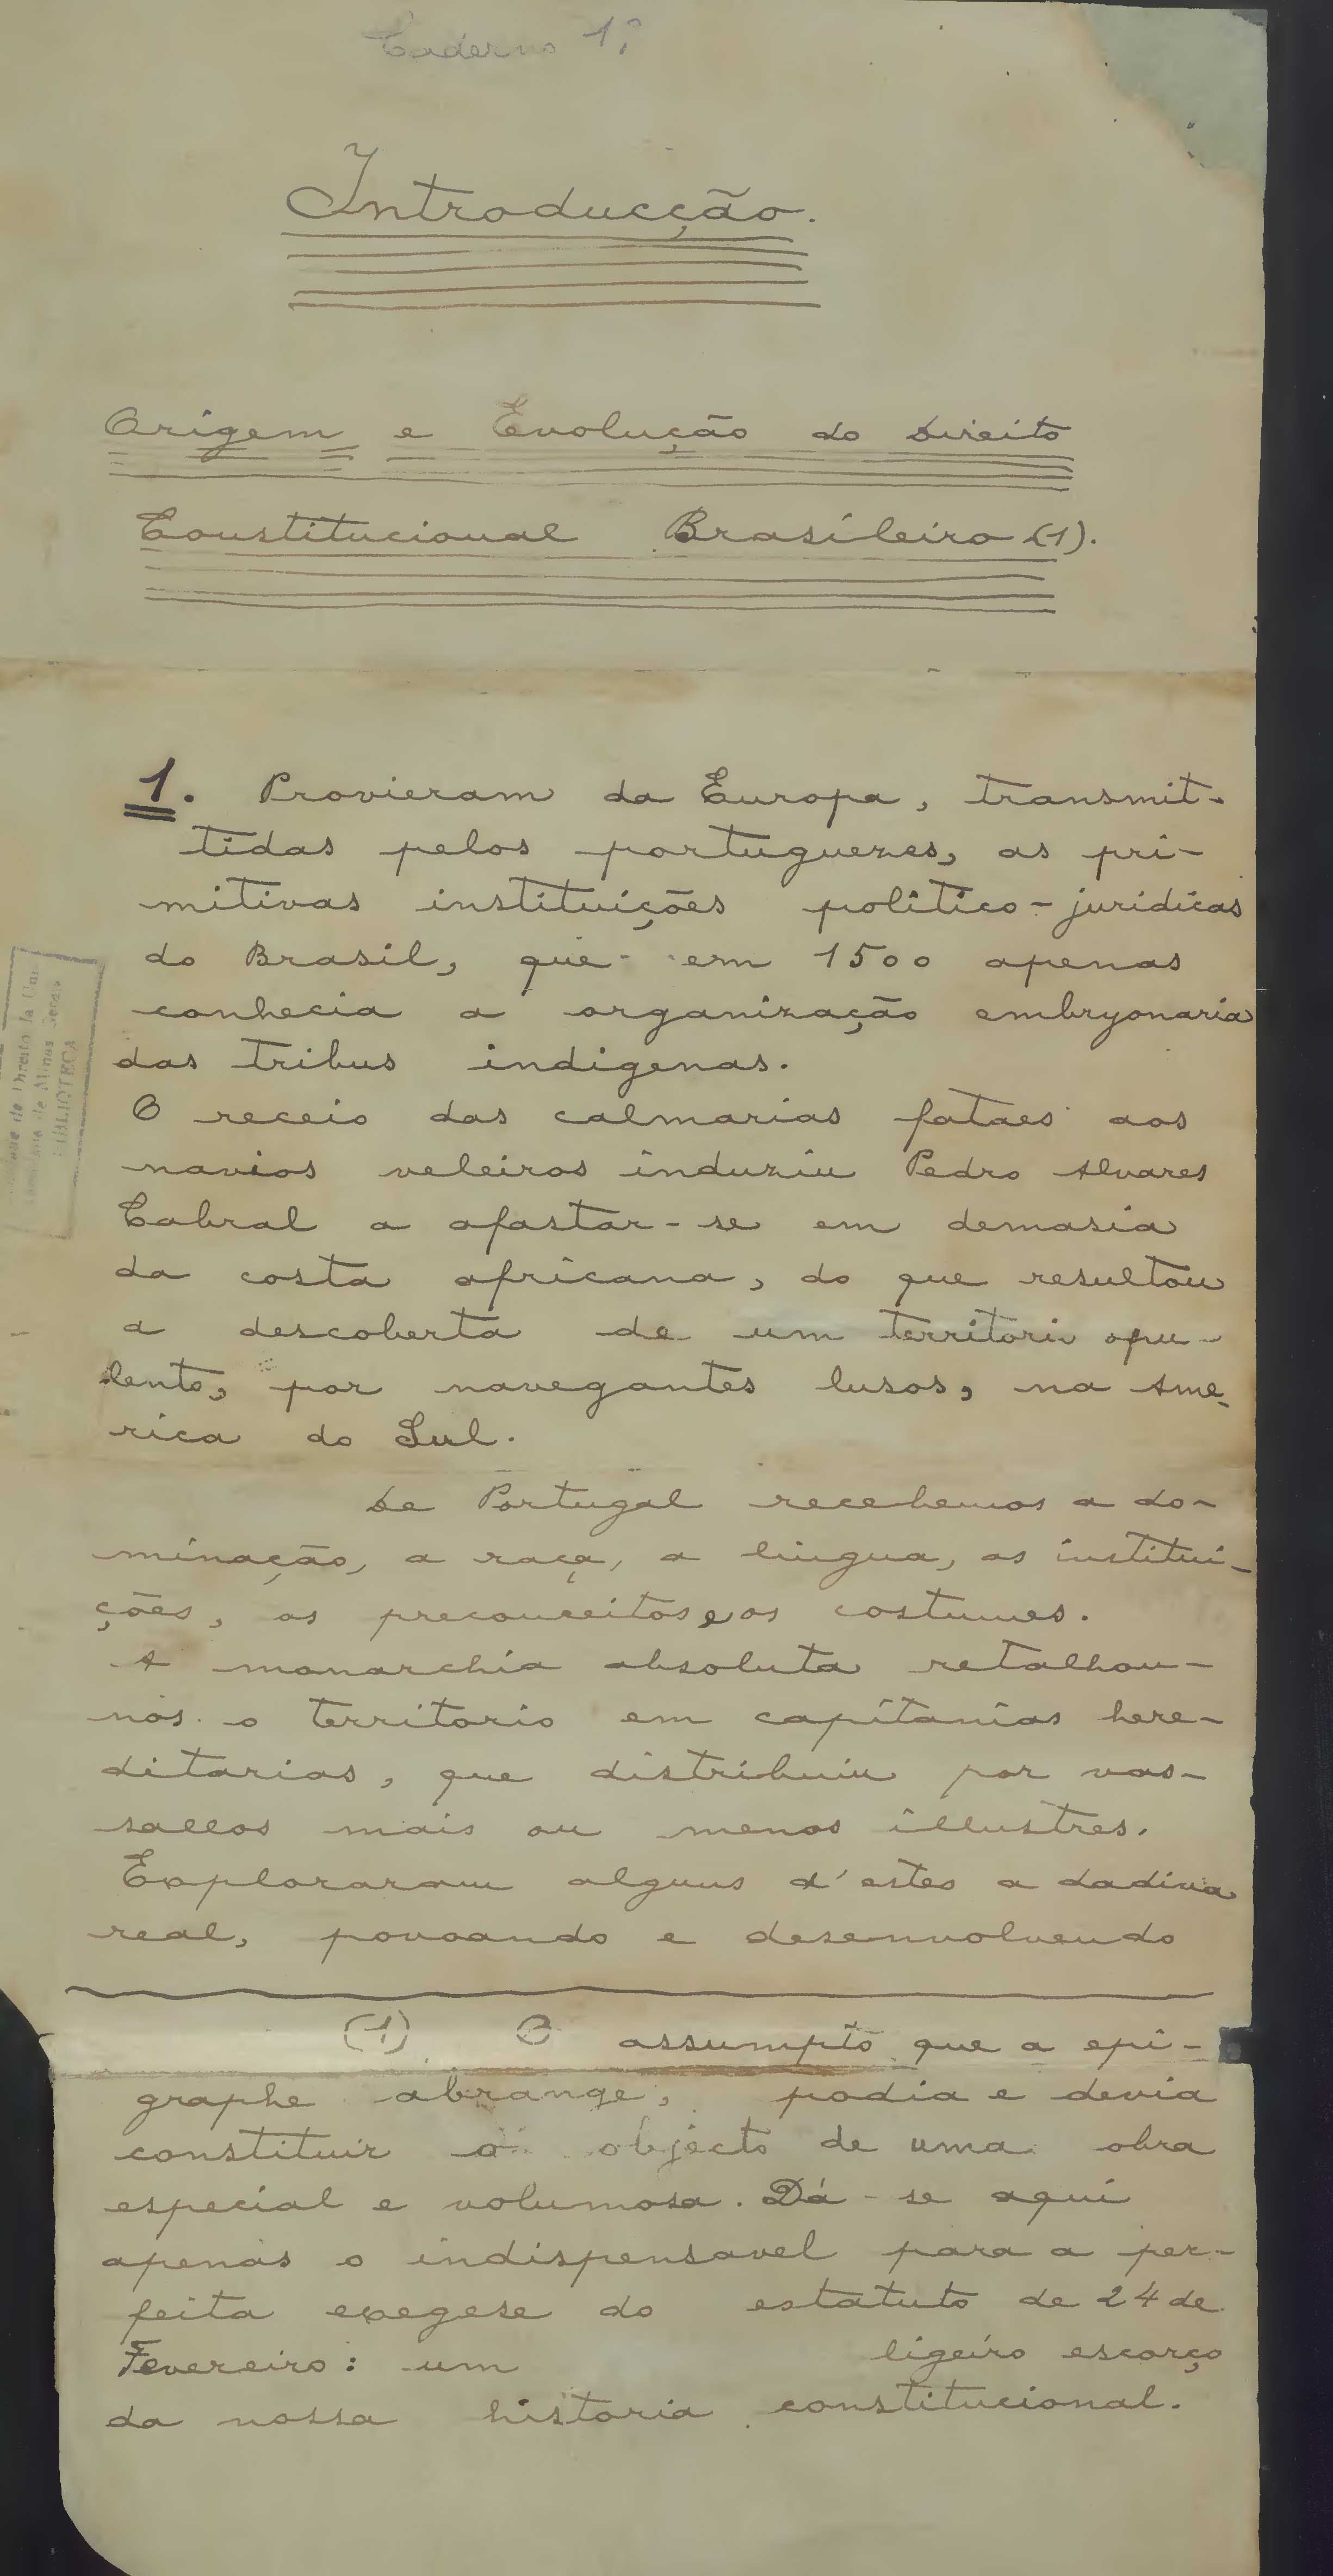 Caderno 1º
Introducção.
Origem e Evolução do Direito
Constitucional Brasileiro (1).
1. Provieram da Europa, transmit-
tidas pelos portuguezes, as pri-
mitivas instituições politico-juridicas
do Brasil, que em 1500 apenas
conhecia a organização embryonaria
das tribus indigenas.
O receio das calmarias fataes aos
navios veleiros induziu Pedro Alvares
Cabral a afastar-se em demasia
da costa africana, do que resultou
a descoberta de um territorio opu-
lento, por navegantes lusos, na Ame-
rica do Sul.
De Portugal recebemos a do-
minação, a raça, a lingua, as institui-
ções, os preconceitos e os costumes.
A monarchia absoluta retalhou-
nos o territorio em capitanias here-
ditarias, que distribuiu por vas-
sallos mais ou menos illustres.
Exploraram alguns d'estes a dadiva
real, povoando e desenvolvendo
(1) O assumpto que a epi-
graphe abrange, podia e devia
constituir o objecto de uma obra
especial e volumosa. Dá-se aqui
apenas o indispensavel para a per-
feita exegese do estatuto de 24 de
Fevereiro: um ligeiro escorço
da nossa historia constitucional.
de Direito da Uni
de Minas Gerais
BIBLIOTECA